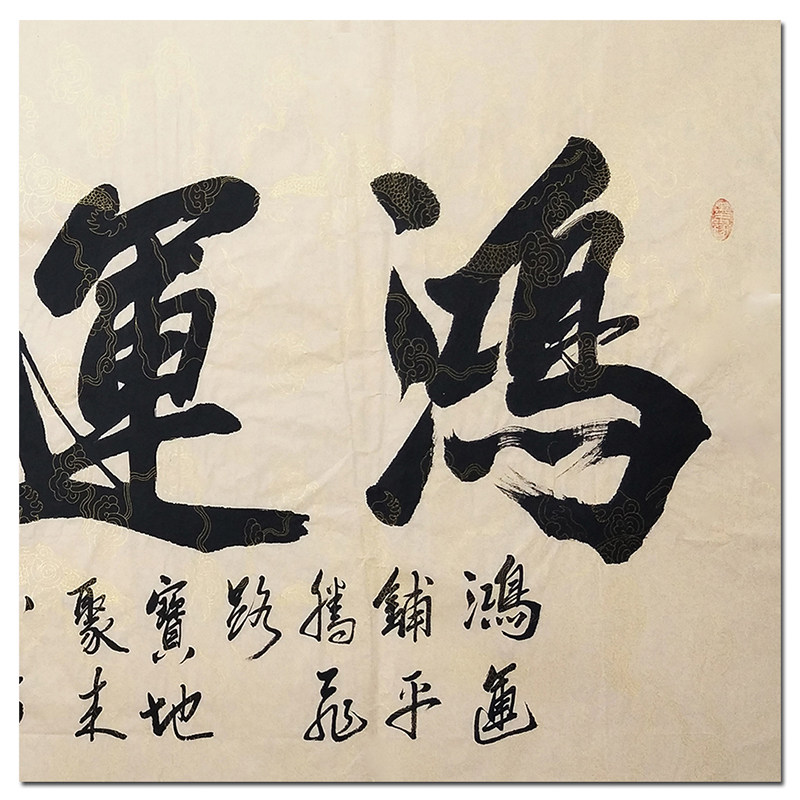 鴻運
鴻運
鋪平
騰飛
路
寶地
聚來